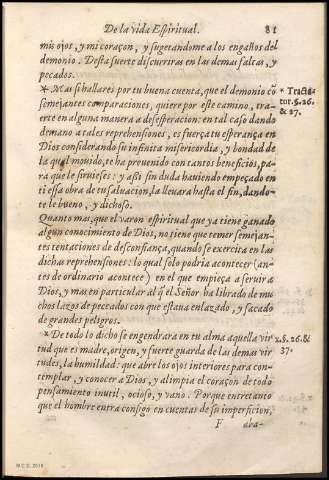 De la vida Espiritual. 81
mis ojos, y mi coraçon, y sugetandome a los engaños del
demonio. Desta suerte discurriras en las demas faltas, y
pecados.
* Mas si hallares por tu buena cuenta, que el demonio cõ
semejantes comparasiones, quiere por este camino, tra-
erte en alguna manera a desesperacion: en tal caso dando
de mano a tales reprehensiones, esfuerça tu esperança en
Dios considerando su infinita misericordia, y bondad de
la qual mouido, te ha preuenido con tantos beneficios, pa-
ra que le siruieses: y assi sin duda hauiendo empeçado en
ti essa obra de tu saluacion, la lleuara hasta el fin, dando-
te lo bueno, y dichoso.
* Tracta-
tor. §. 26.
& 27.
Quanto mas, que el varon espiritual que ya tiene ganado
algun conocimiento de Dios, no tiene que temer semejan-
tes tentaciones de desconfiança, quando se exercita en las
dichas reprehensiones: lo qual solo podria acontecer (an-
tes de ordinario acontece) en el que empieça a seruir a
Dios, y mas en particular al q̃ el Señor ha librado de mu
chos lazos de pecados con que estaua enlazado, y sacado
de grandes peligros.
* De todo lo dicho se engendrara en tu alma aquella vir
tud que es madre, origen, y fuerte guarda de las demas vir
tudes, la humildad: que abre los ojos interiores para con-
templar, y conocer a Dios, y alimpia el coraçon de todo
pensamiento inutil, ocioso, y vano. Porque entretanto
que el hombre entra consigo en cuentas de su imperficion,
§. 26. &
37.
F ava-
M.C.D. 2018